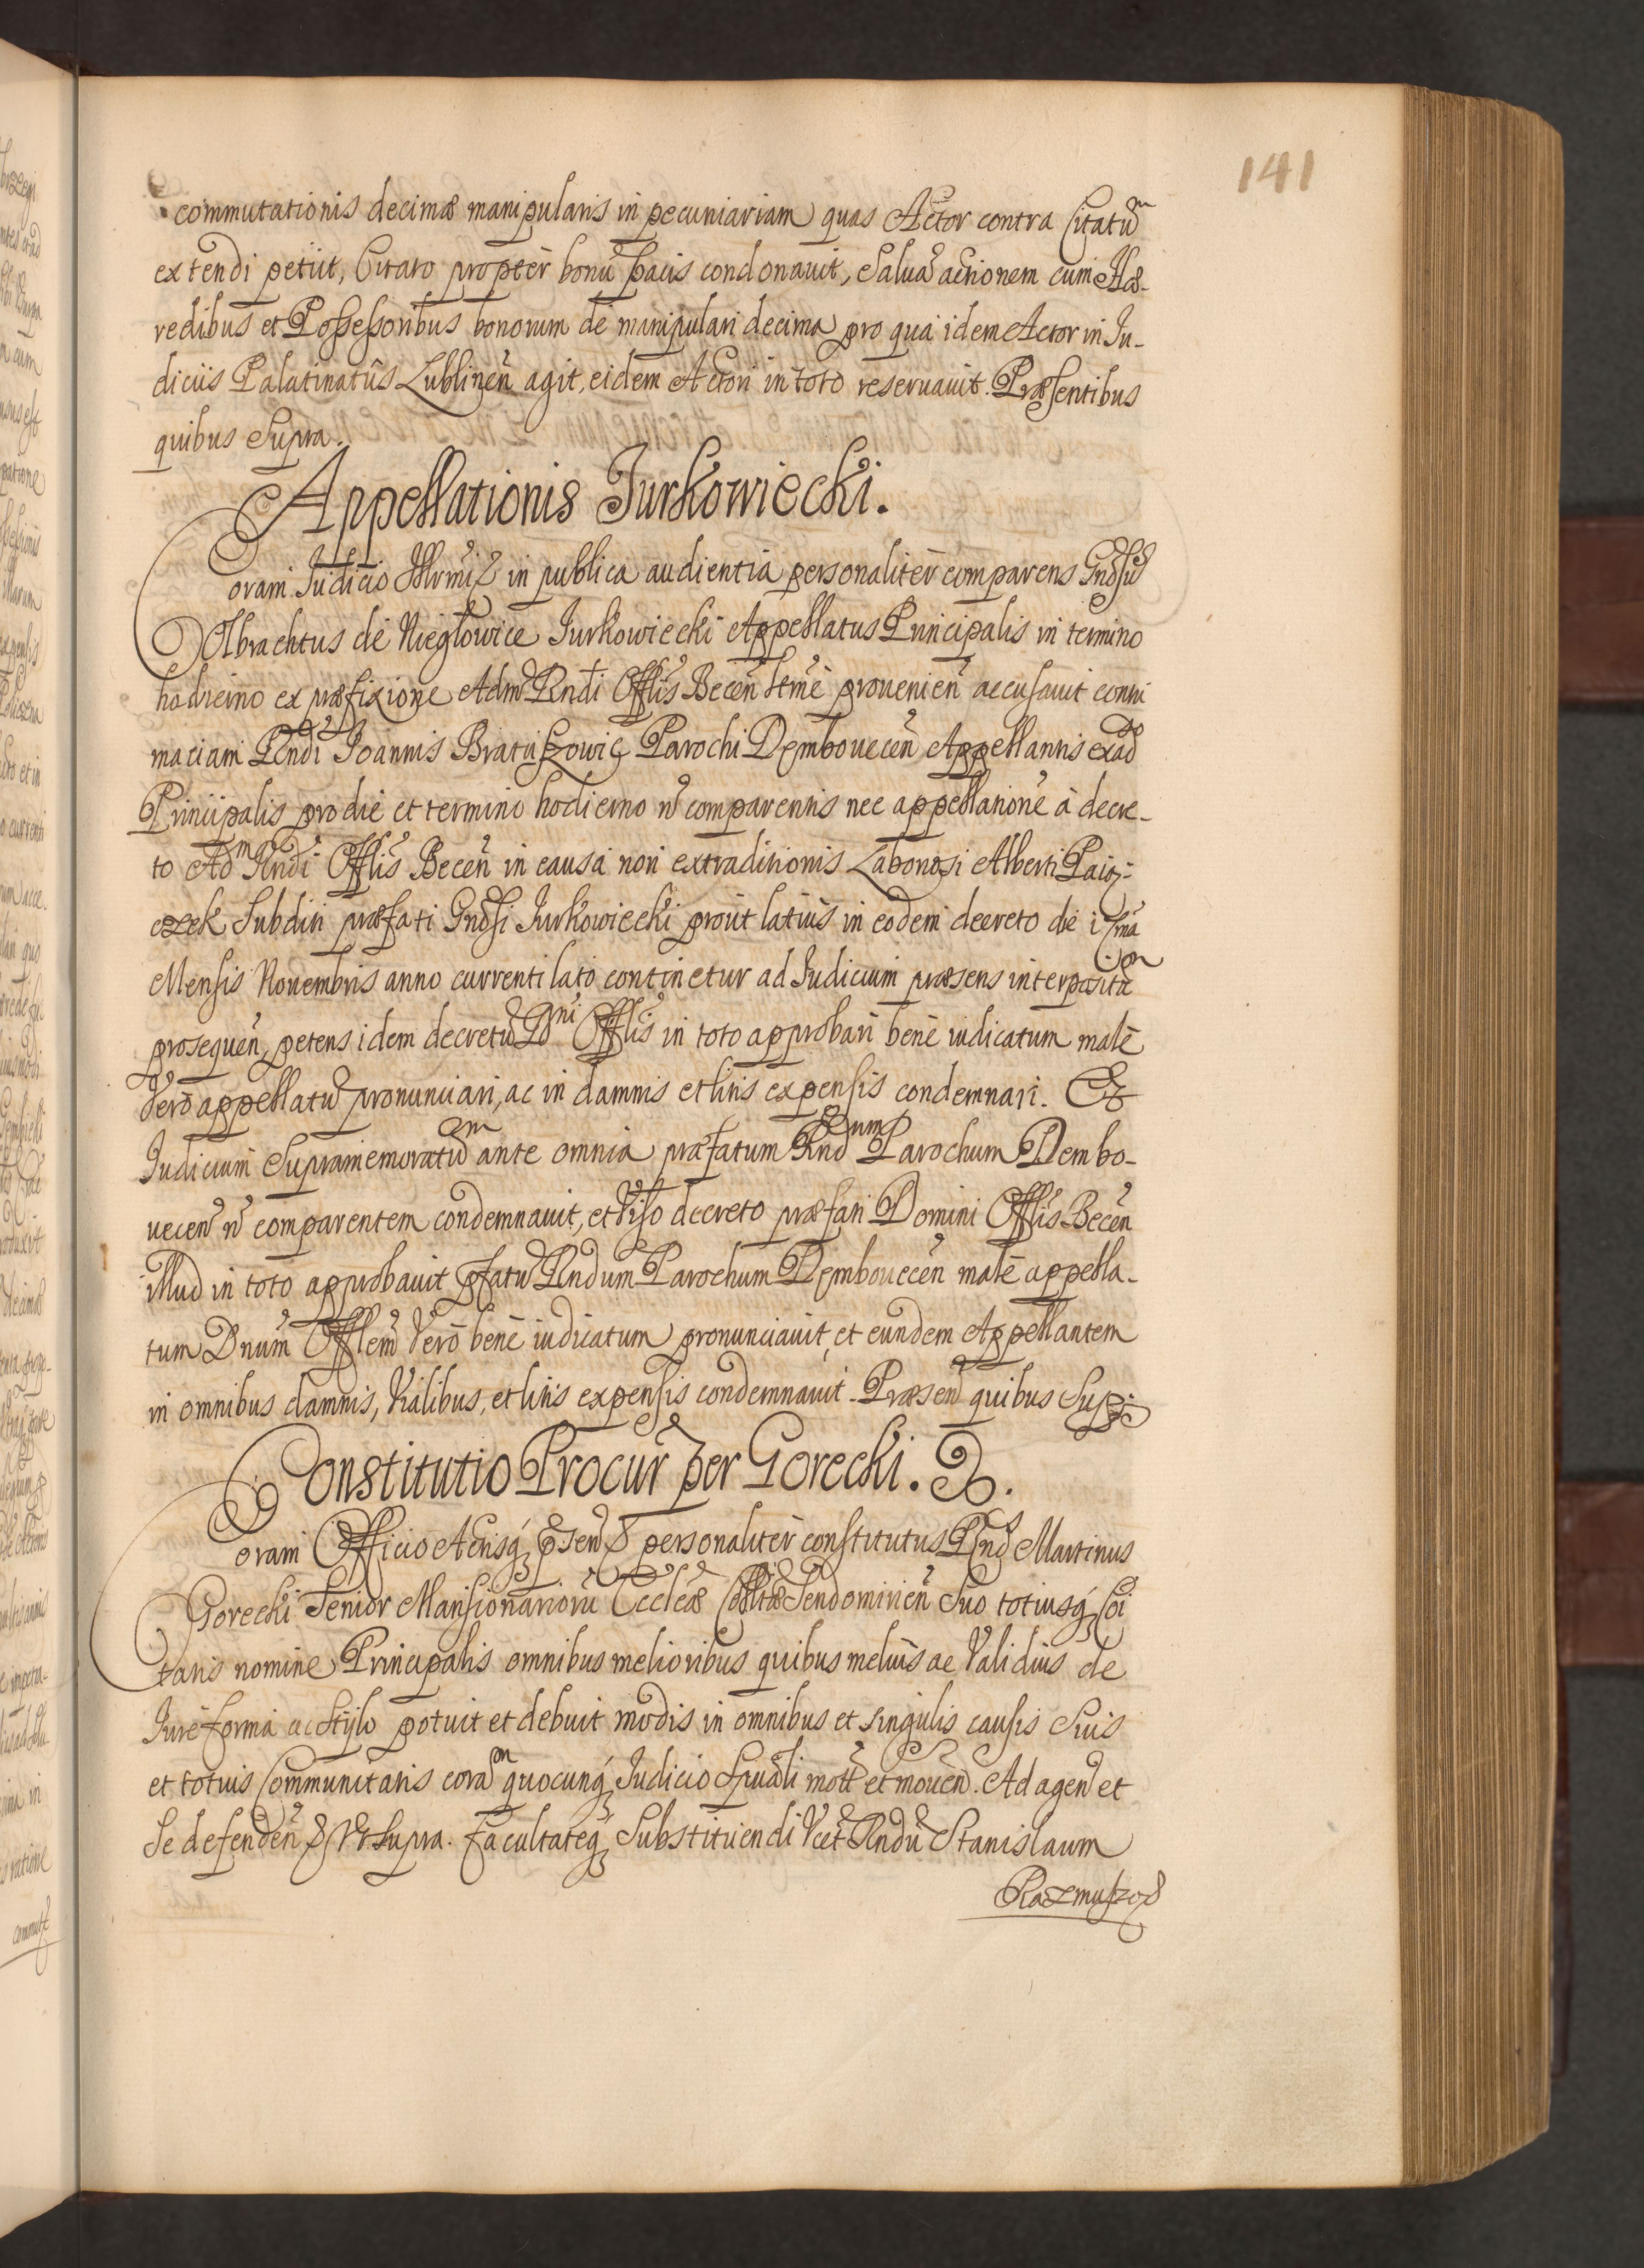 141
commutationis decimæ manipularis in pecuniariam quas Actor contra Citatū
extendi petiit, Citato proptèr bonū pacis condonauit, Saluā actionem cum Hæ-
redibus et Possessoribus bonorum de manipulari decima pro qua idem Actor in Iu-
diciis Palatinatûs Lublinen̄ agit, eidem Actori in toto reseruauit. Præsentibus
quibus Supra.
Appellationis Iurkowiecki.
Coram Iudicio Illrmi & in publica audientia personalitèr comparens Gnosū
Olbrachtus de Nieglowice Iurkowiecki Appellatus Principalis in termino
hodierno ex præfixione Adm Rndi Offlis Becen̄ prouenien̄ accusauit contu
maciam Rndi Ioannis Bratuszowic Parochi Dembouecen̄ Appellantis ex ad
Principalis pro die et termino hodierno n̄ comparentis nec appellationē à decre-
to Adm Rndi Offlis Becen̄ in causa non extraditionis Laboriosi Alberti Paią-
czek Subditi præfati Gnosi Iurkowiecki prout latius in eodem decreto de
Mensis Nouembris anno currenti lato continetur ad Iudicium præsens interpositā
prosequen̄, petens idem decretū Dni Offlis in toto approbari benè iudicatum malè
Verò appellatū pronunciari, ac in damnis et litis expensis condemnari. Et
Iudicium Supramemoratū ante omnia præfatum Rndum Parochum Dembo-
uecen̄ n̄ comparentem condemnauit, et Viso decreto præfati Domini Offlis Becen̄
illud in toto approbauit pfatū Rndum Parochum Dembouecen̄ malè appella-
tum Dnum Offlem Verò benè iudicatum pronunciauit, et eundem Appellantem
in omnibus damnis, Vialibus, et litis expensis condemnauit. Præsen̄ quibus Sup:
Constitutio Procur̄ per Gorecki. &.
Coram Officio Actisq́ psen̄ & personalitèr constitutus Rnd Martinus
Gorecki Senior Mansionariorū Eccleæ Colltæ Sendomirien̄ Suo totiusq́ Coi
tatis nomine Principalis omnibus melioribus quibus meliùs ac Validiùs de
Iure forma ac Stylo potuit et debuit modis in omnibus et singulis causis Suis
et totius Communitatis corā quocunq́ Iudicio Spuāli mott̄ et mouen̄. Ad agen̄ et
Se defenden̄ & Vt Supra. Facultateq́ Substituendi Vēt Rndū Stanislaum
Razmuszow